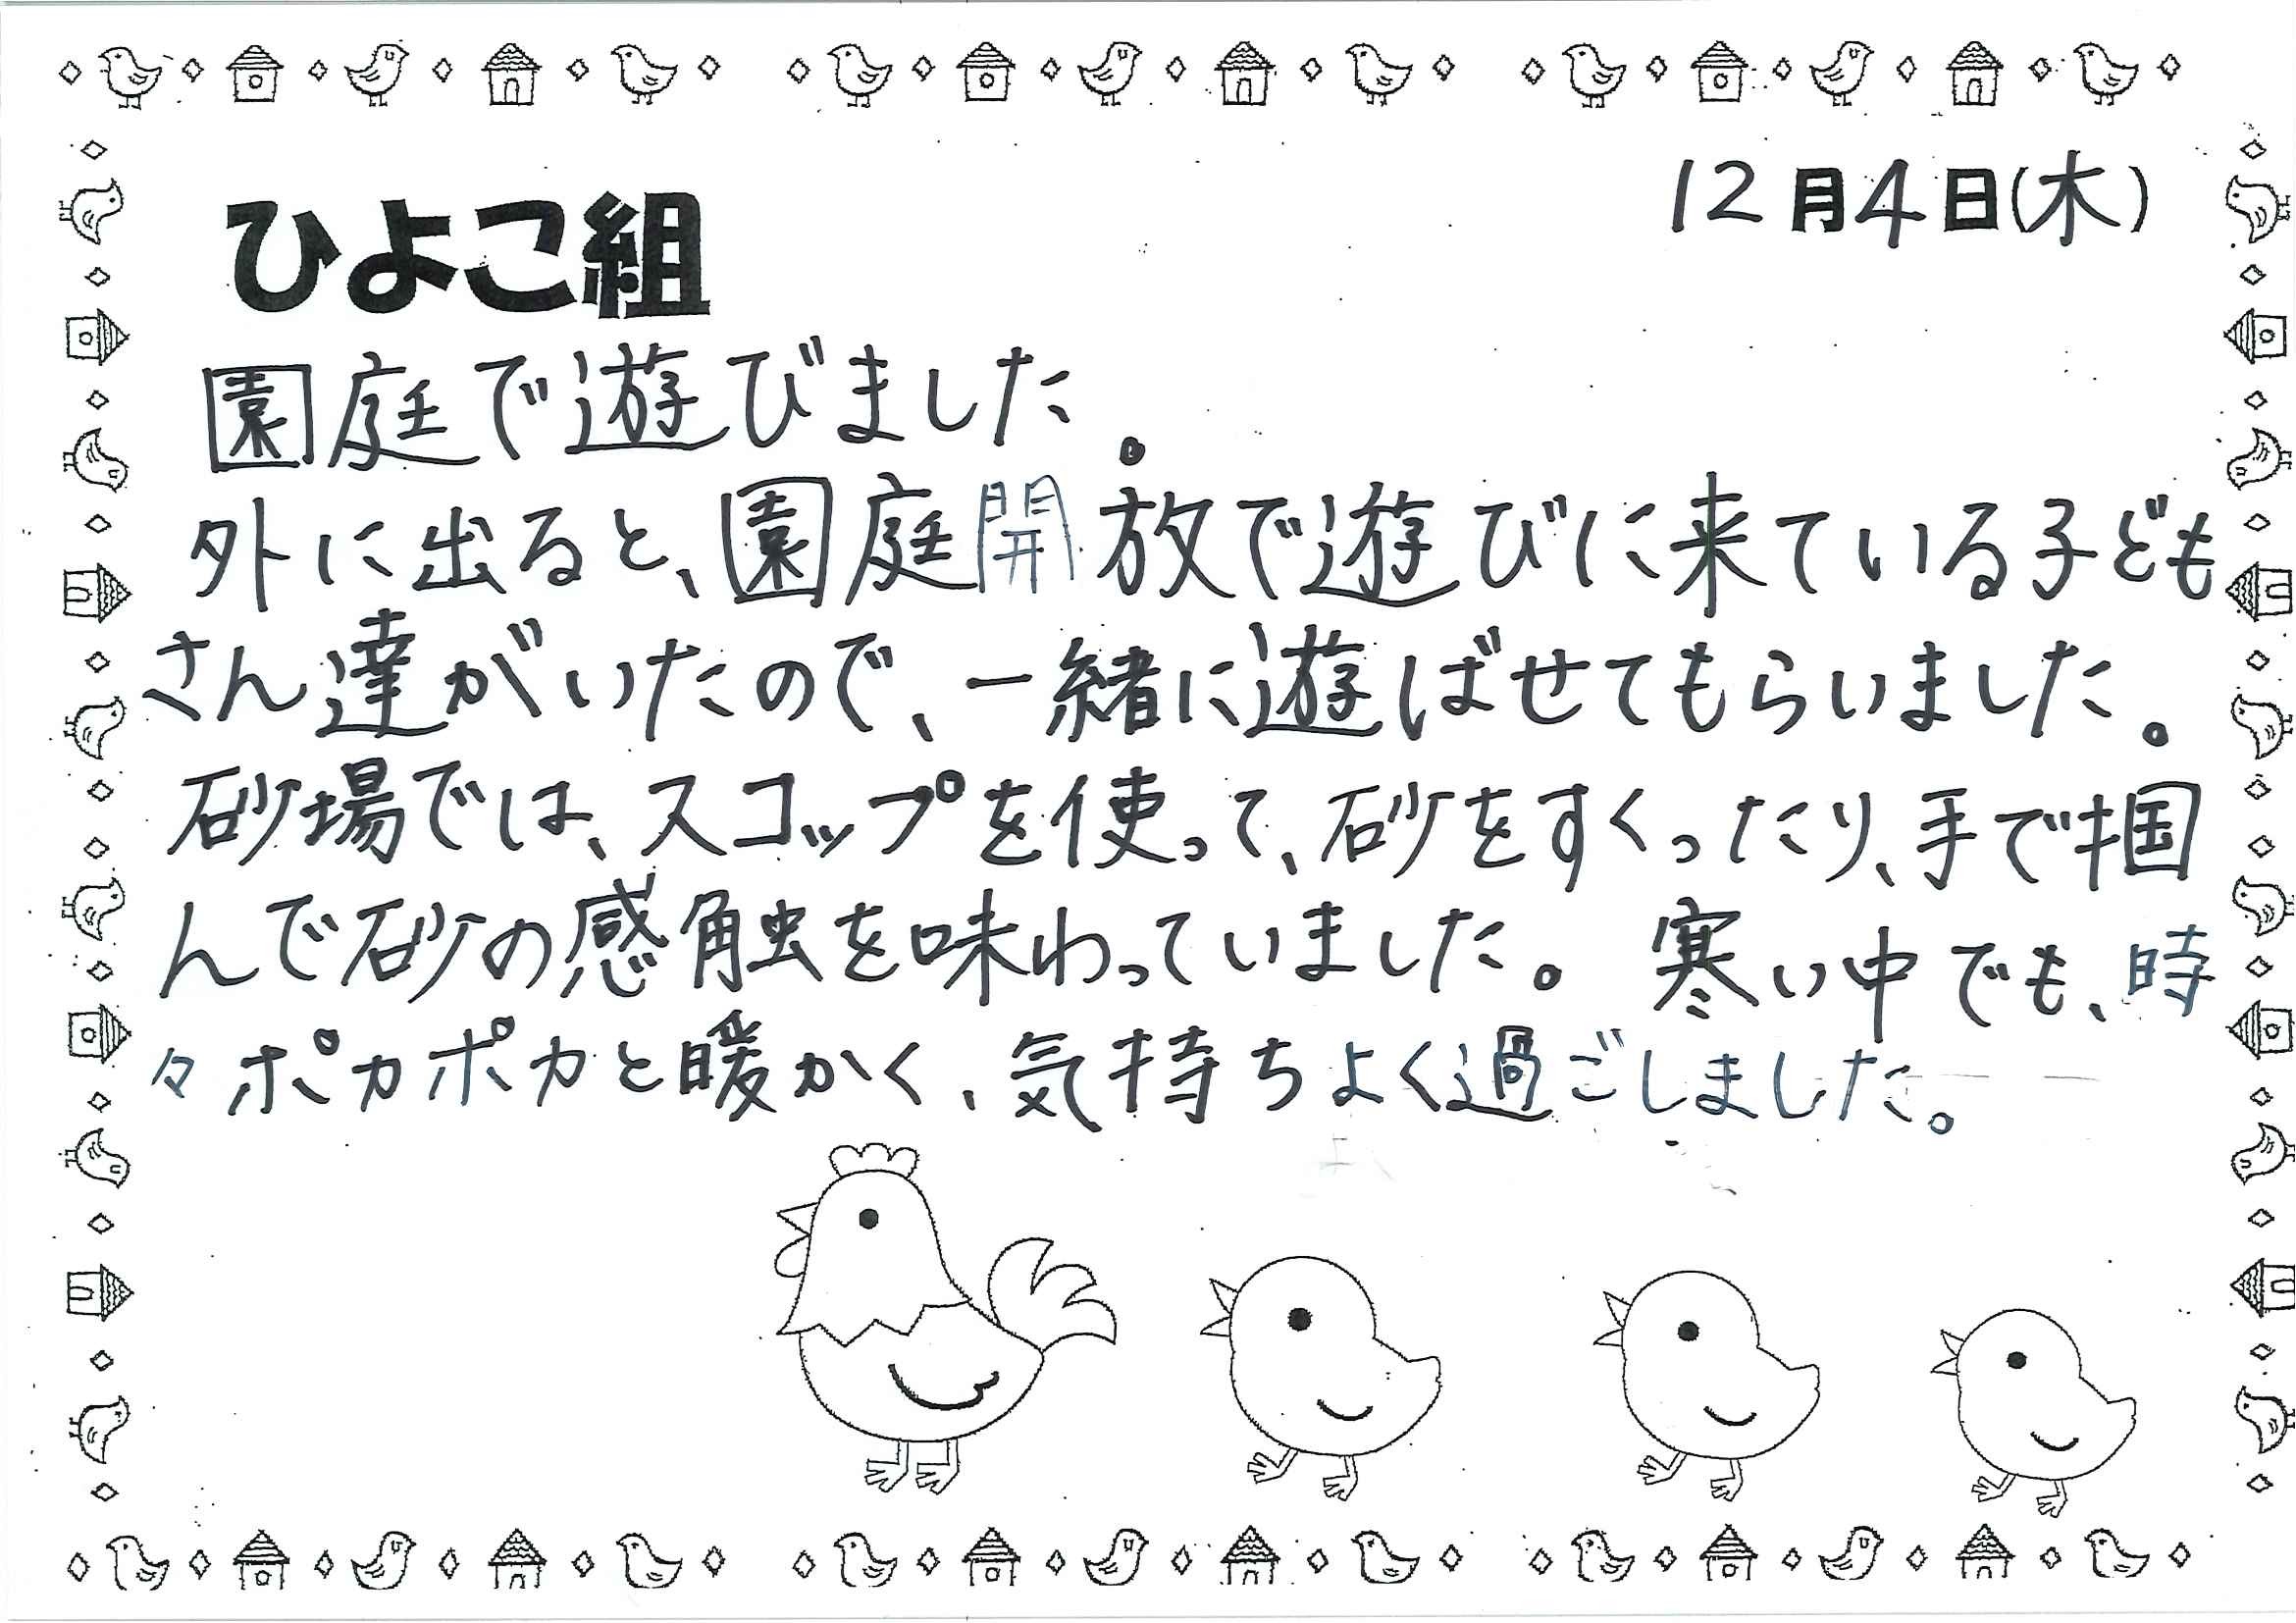 12月4日(木)
ひよこ組
園庭で遊びました。
外に出ると、園庭開放で遊びに来ている子ども
さん達がいたので、一緒に遊ばせてもらいました。
砂場では、スコップを使って、砂をすくったり、手で掴
んで砂の感触を味わっていました。 寒い中でも、時
々ポカポカと暖かく、気持ちよく過ごしました。